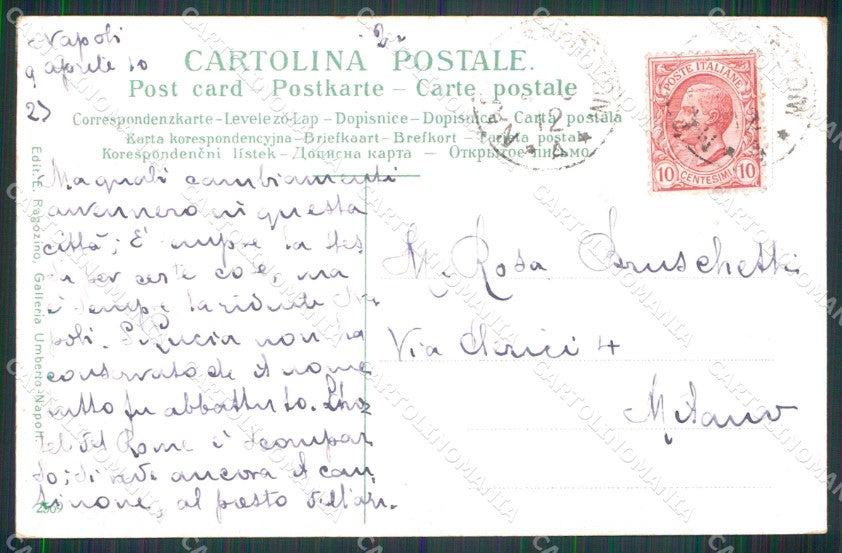 Napoli
9 aprile 10
CARTOLINA POSTALE.
Post card – Postkarte – Carte postale
Correspondenzkarte – Levelező-Lap – Dopisnice – Dopisnica – Carta postala
Karta korespondencyjna – Briefkaart – Brefkort – Tarjeta postal
Korespondenční lístek – Дописна карта – Открытое письмо
POSTE ITALIANE
10 CENTESIMI 10
Edit. E. Ragozino, Galleria Umberto-Napoli
Ma quali cambiamenti
avvennero in questa
città; E' sempre la stes
sa per certe cose, ma
è sempre la ridente Na
poli. S. Lucia non ha
conservato che il nome
tutto fu abbattuto. L'ho
tel de Rome è scompar
so; si vede ancora il can
tinone, al posto dell'an.
2569
M. Rosa Bruschetti
Via Clerici 4
Milano
CARTOLINOMANIA